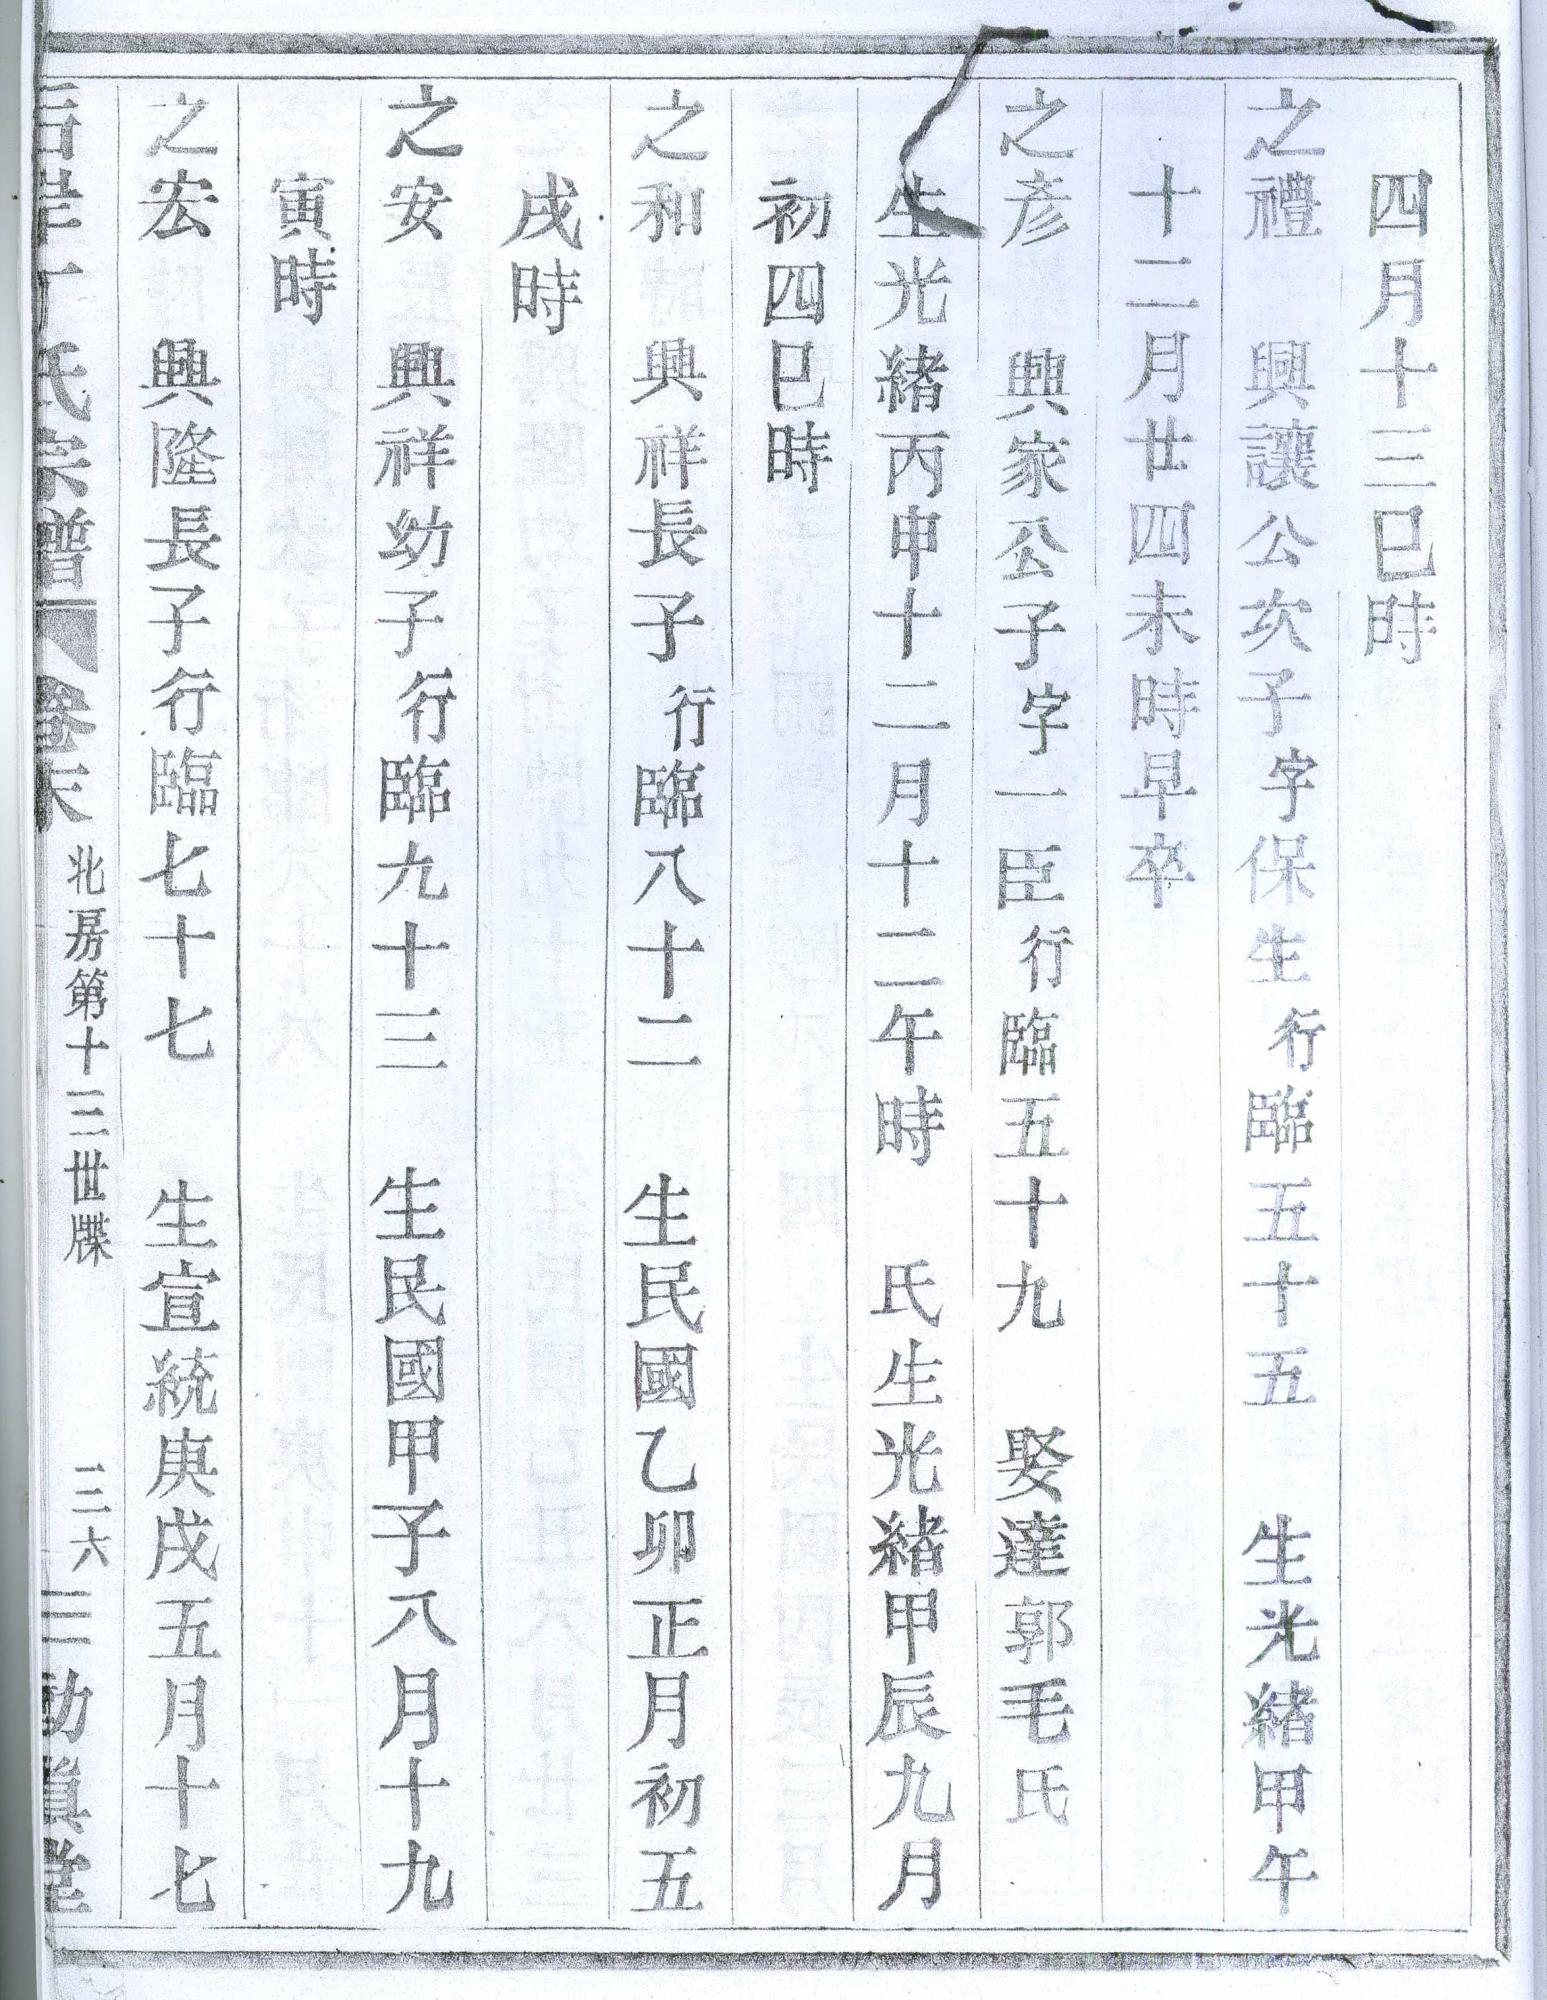 四月十三巳時
之禮　興讓公次子字保生行臨五十五　生光緒甲午
十二月廿四未時早卒
之彥　興家公子字一臣行臨五十九　娶達郭毛氏
生光緒丙申十二月十二午時　氏生光緒甲辰九月
初四巳時
之和　興祥長子行臨八十二　生民國乙卯正月初五
戌時
之安　興祥幼子行臨九十三　生民國甲子八月十九
寅時
之宏　興隆長子行臨七十七　生宣統庚戌五月十七
丁氏宗譜　卷末　北房第十三世牒　三六　堂